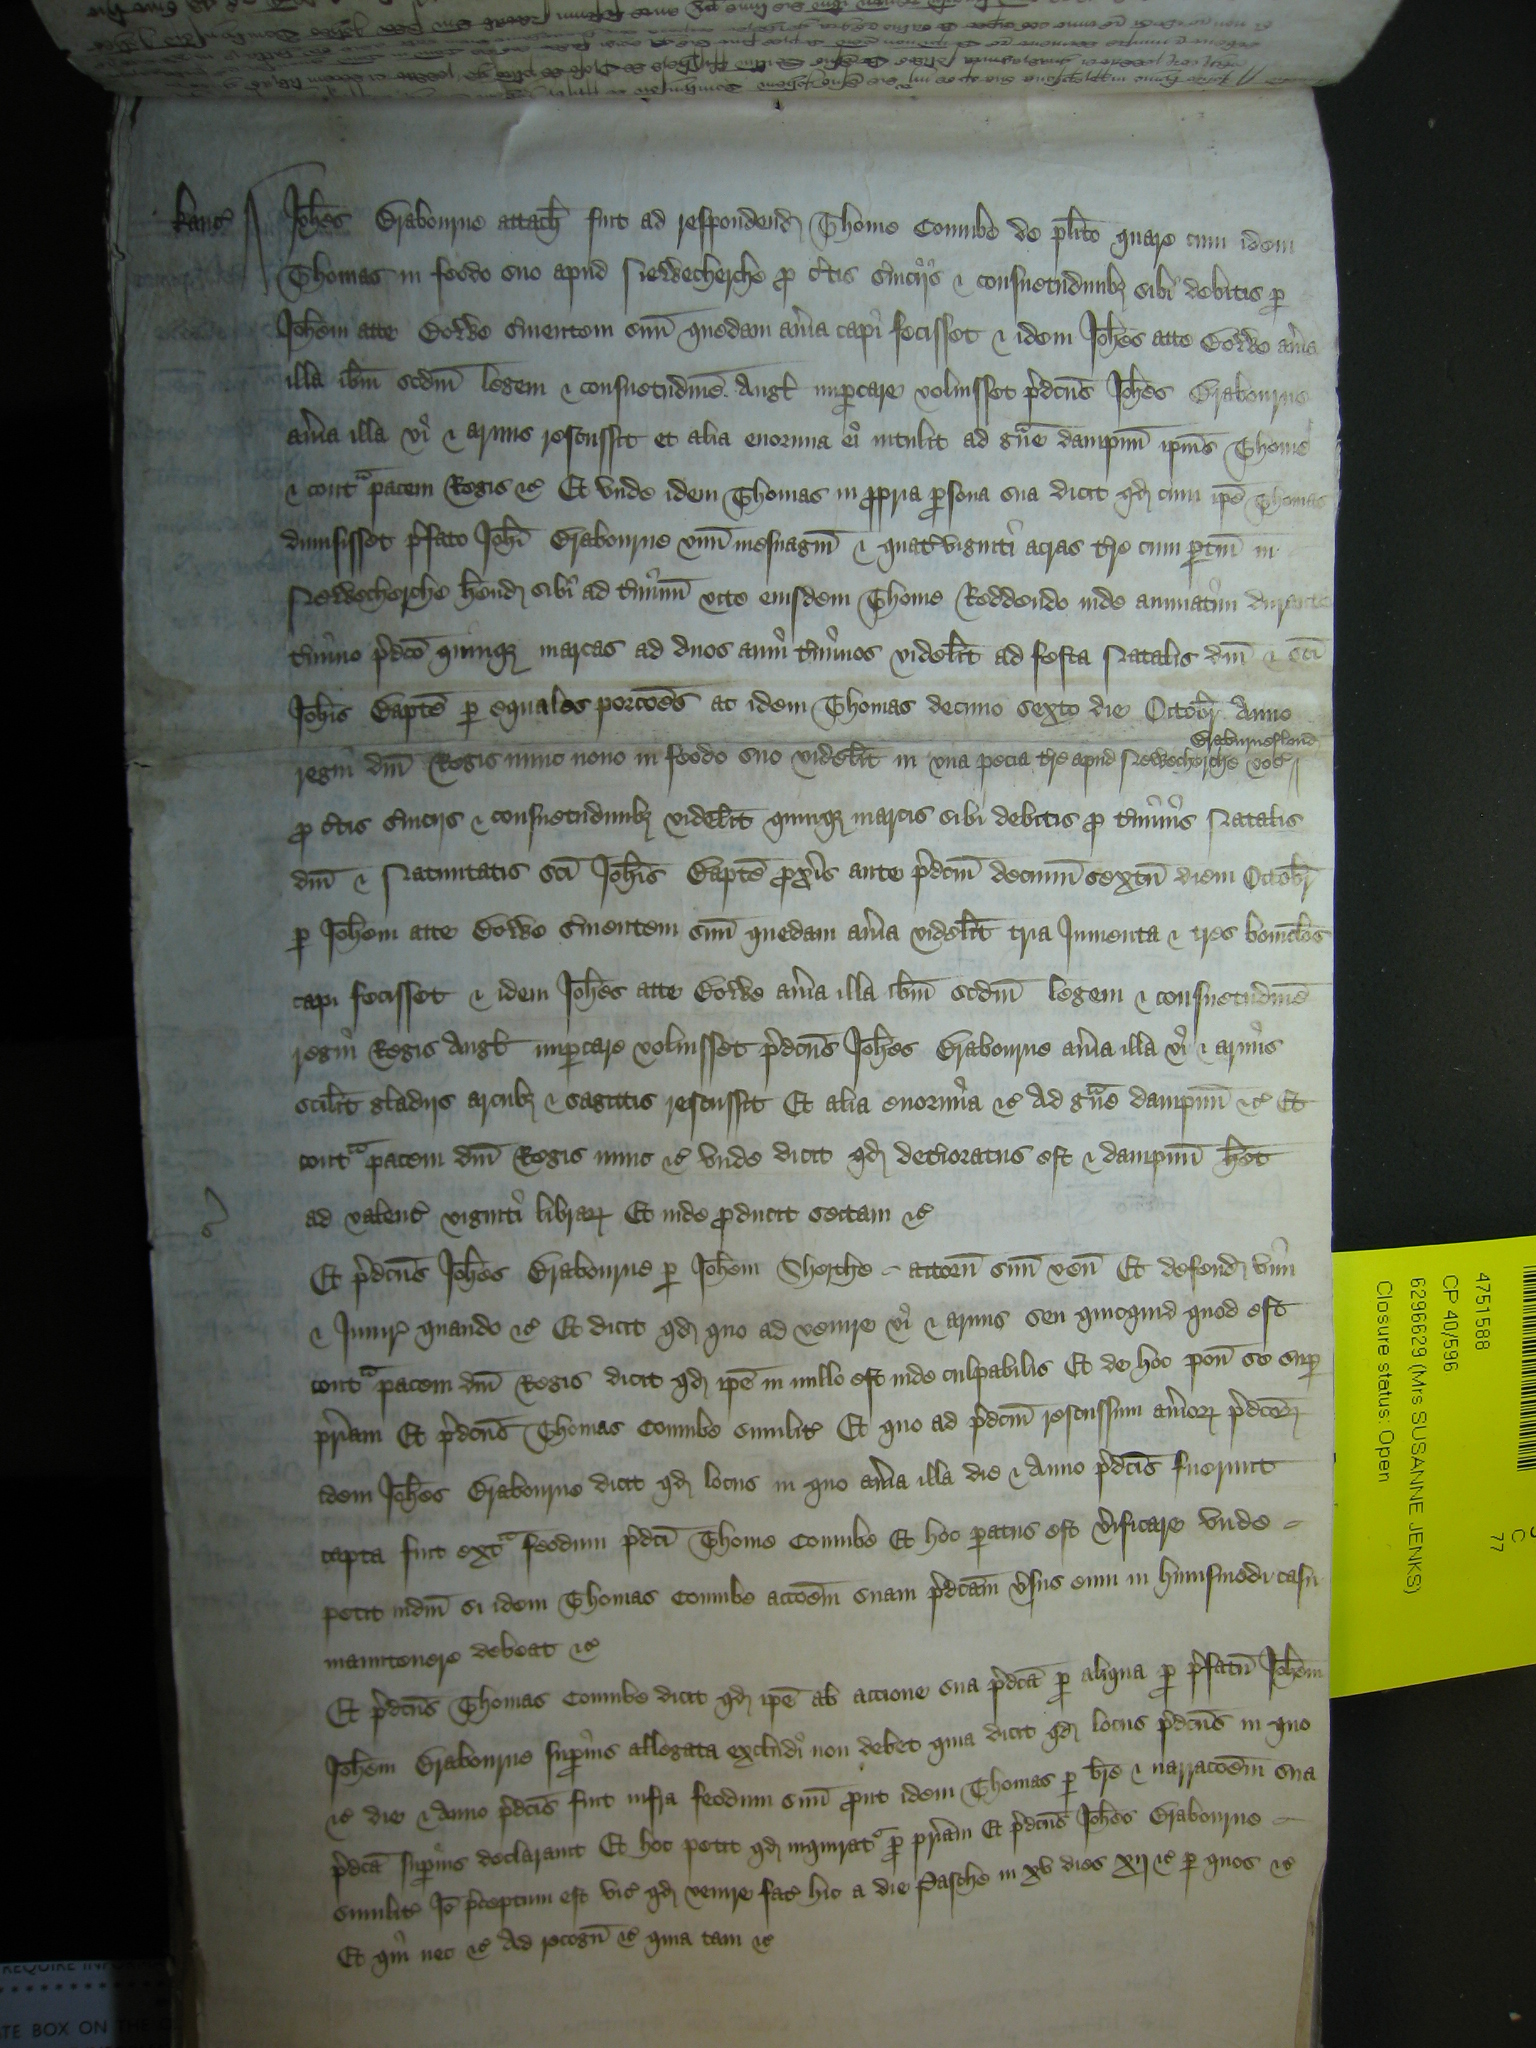 Kanc̃ Joħes Brabourne attacħ fuit ad respondend Thome Combe de pl̃ito quare cum idem
Thomas in feodo suo apud Newecherche p c̃tis s̃uicijs & consuetudinibȝ sibi debitis p
Joħem atte Bowe s̃uientem suũ quedam aĩalia capi fecisset & idem Joħes atte Bowe aĩalia
illa ib̃m sc̃dm legem & consuetudinẽ Angl̃ imp̃care voluisset p̃dc̃us Joħes Brabourne
aĩalia illa vi & armis rescussit et alia enormia ei intulit ad g̃ue dampnũ ip̃ius Thome
& contᵃ pacem Regis &c̃ Et unde idem Thomas in p̃pria p̃sona sua dicit qd cum ip̃e Thomas
dimisisset p̃fato Joħi Brabourne unũ mesuagiũ & quat̃viginti acras t̃re cum p̃tiñ in
Newecherche ħend sibi ad t̃minũ vite eiusdem Thome Reddendo inde annuatim durante
t̃mino p̃dc̃o quinqȝ marcas ad duos anni t̃minos videl̃t ad festa Natalis dñi & sc̃i
Joħis Bapt̃e p equales porc̃oes ac idem Thomas decimo sexto die Octobr̃ Anno
regni dñi Regis nunc nono in feodo suo videl̃t in una pecia t̃re apud Newecherche voc̃ Braburneslond
p c̃tis s̃uicijs & consuetudinibȝ videl̃t quinqȝ marcis sibi debitis p t̃minis Natalis
dñi & Natiuitatis sc̃i Joħis Bapt̃e p̃xĩs ante p̃dc̃m decimũ sextũ diem Octobr̃
p Joħem atte Bowe s̃uientem suũ quedam aĩalia videl̃t tria Jumenta & tres bouic̃los
capi fecisset & idem Joħes atte Bowe aĩalia illa ib̃m sc̃dm legem & consuetudinẽ
regni Regis Angl̃ imp̃care voluisset p̃dc̃us Joħes Brabourne aĩalia illa vi & armis
scil̃t gladijs arcubȝ & sagittis rescussit Et alia enormia &c̃ Ad g̃ue dampnũ &c̃ Et
contᵃ pacem dñi Regis nunc &c̃ unde dicit qd det̃ioratus est & dampnũ ħet
ad valenc̃ viginti librarȝ Et inde p̃ducit sectam &c̃
Et p̃dc̃us Joħes Brabourne p Joħem Sherthe attorñ suũ veñ Et defend vim
& Iniur̃ quando &c̃ Et dicit qd quo ad venire vi & armis seu quicquid quod est
contᵃ pacem dñi Regis dicit qd ip̃e in nullo est inde culpabilis Et de hoc poñ se sup
pr̃iam Et p̃dc̃us Thomas Combe similit̃ Et quo ad p̃dc̃m rescussum aĩaliorȝ p̃dc̃orȝ
idem Joħes Brabourne dicit qd locus in quo aĩalia illa die & Anno p̃dc̃is fuerunt
capta fuit extᵃ feodum p̃dc̃i Thome Combe Et hoc paratus est ṽificare unde
petit iudm̃ si idem Thomas Combe acc̃oem suam p̃dc̃am ṽsus eum in huiusmodi casu
manutenere debeat &c̃
Et p̃dc̃us Thomas Combe dicit qd ip̃e ab accione sua p̃dc̃a p aliqua p p̃fatũ Joħem
Joħem Brabourne sup̃ius allegata excludi non debet quia dicit qd locus p̃dc̃us in quo
&c̃ die & Anno p̃dc̃is fuit infra feodum suũ p̃ut idem Thomas p br̃e & narrac̃oem sua
p̃dc̃a sup̃ius declarauit Et hoc petit qd inquirat̃ p pr̃iam Et p̃dc̃us Joħes Brabourne
similit̃ Jõ p̃ceptum est vic̃ qd venire fac̃ hic a die Pasche in xv dies xij &c̃ p quos &c̃
Et qui nec &c̃ Ad recogñ &c̃ quia tam &c̃
4751588
CP 40/596
6296629 (Mrs SUSANNE JENKS)
Closure status: Open
C
77